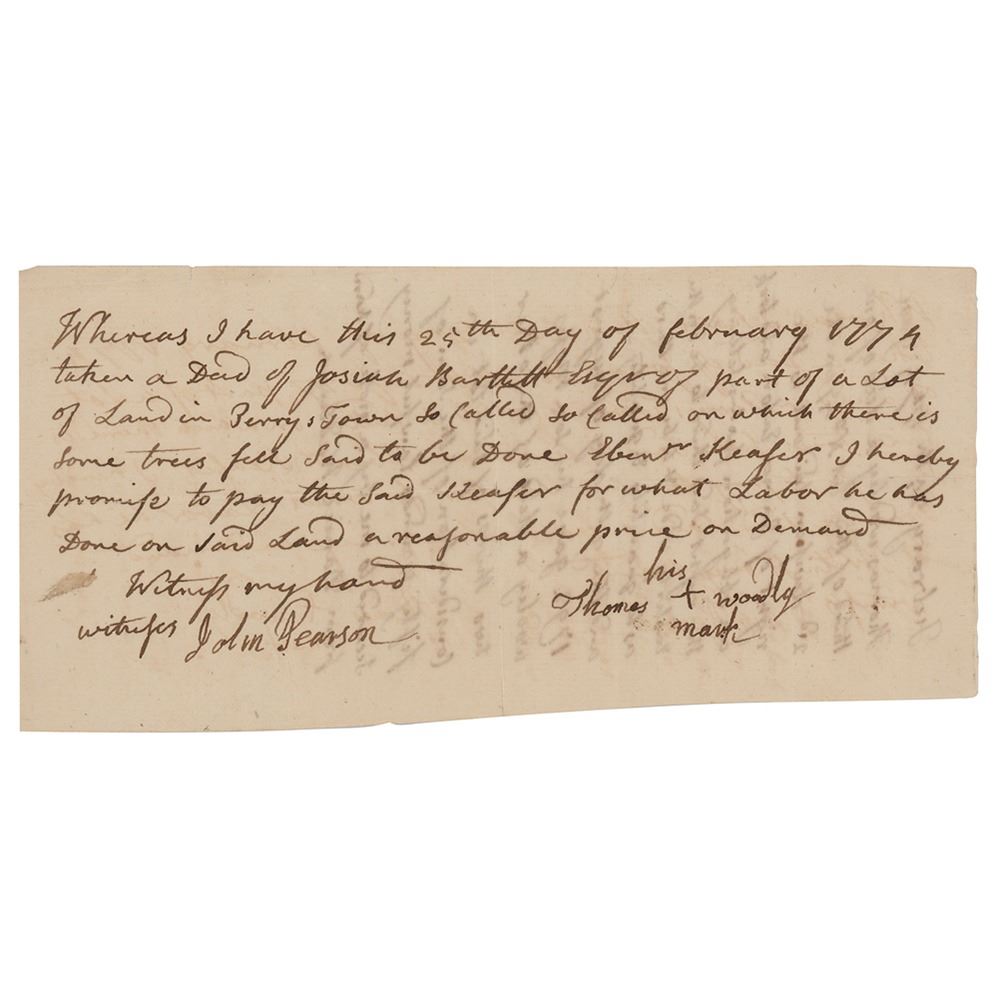 Whereas I have this 25th Day of february 1774
taken a Deed of Josiah Bartlett Esqr of part of a Lot
of Land in Perrystown So Called So Called on which there is
Some trees fell Said to be Done Ebenr Keaser I hereby
promise to pay the Said Keaser for what Labor he has
Done on Said Land a reasonable price on Demand
Witness my hand
his
Thomas + woodly
mark
witness John Pearson